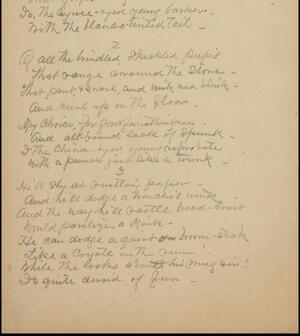 Is, the Azure-eyed young barker
With the Flanco-tinted tail -
2
Of all the brindled, speckled pups
That range around the stove -
That pant & snore, and wink and blink -
And curl up on the floor
My choice, - for good for nothingness
And all-round sacks of spunk -
Is the China-eyed young reprobate
With a paunch just like a trunk -
3
He'll shy at rustling paper -
And he'll dodge a broncho's wink -
And the way he'll rattle bread-crust
Would paralyze a Mink -
He can dodge a quirt or broom-stick
Like a Coyote on the run
While the looks his mug
Is quite devoid of fun -